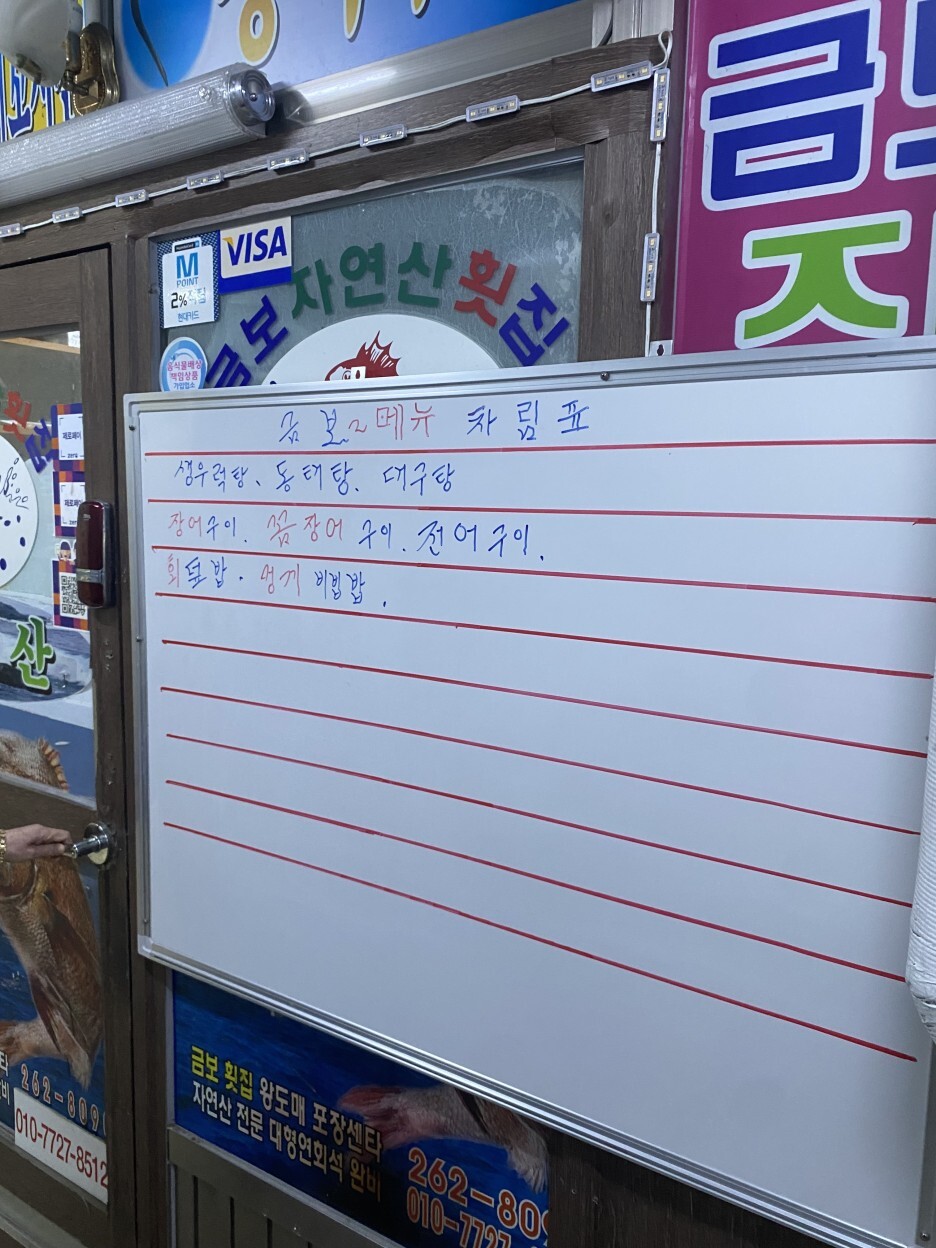 금
지
VISA
M
POINT
2%적립
현대카드
금보자연산횟집
음식물배상
책임상품
가입업소
횟집
제로페이
제로페이
금보 2 메뉴 차림표
생우럭탕. 동태탕. 대구탕
장어구이. 꼼장어 구이. 전어구이.
회덮밥. 멍게 비빔밥.
산
금보 횟집 왕도매 포장센타
자연산 전문 대형연회석 완비
262-809
010-7727
262-809
010-7727-8512